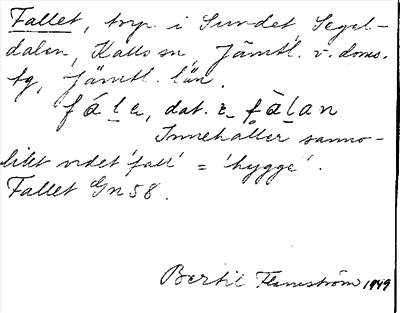 Fallet, torp i Sundet, Segel-
dalen, Kalls sn, Jämtl. v. doms.
tg, Jämtl. län.
fála, dat. -fàlan
Innehåller sanno-
likt ordet 'fall' = 'hygge'.
Fallet Gn 58.
Bertil Flemström 1949